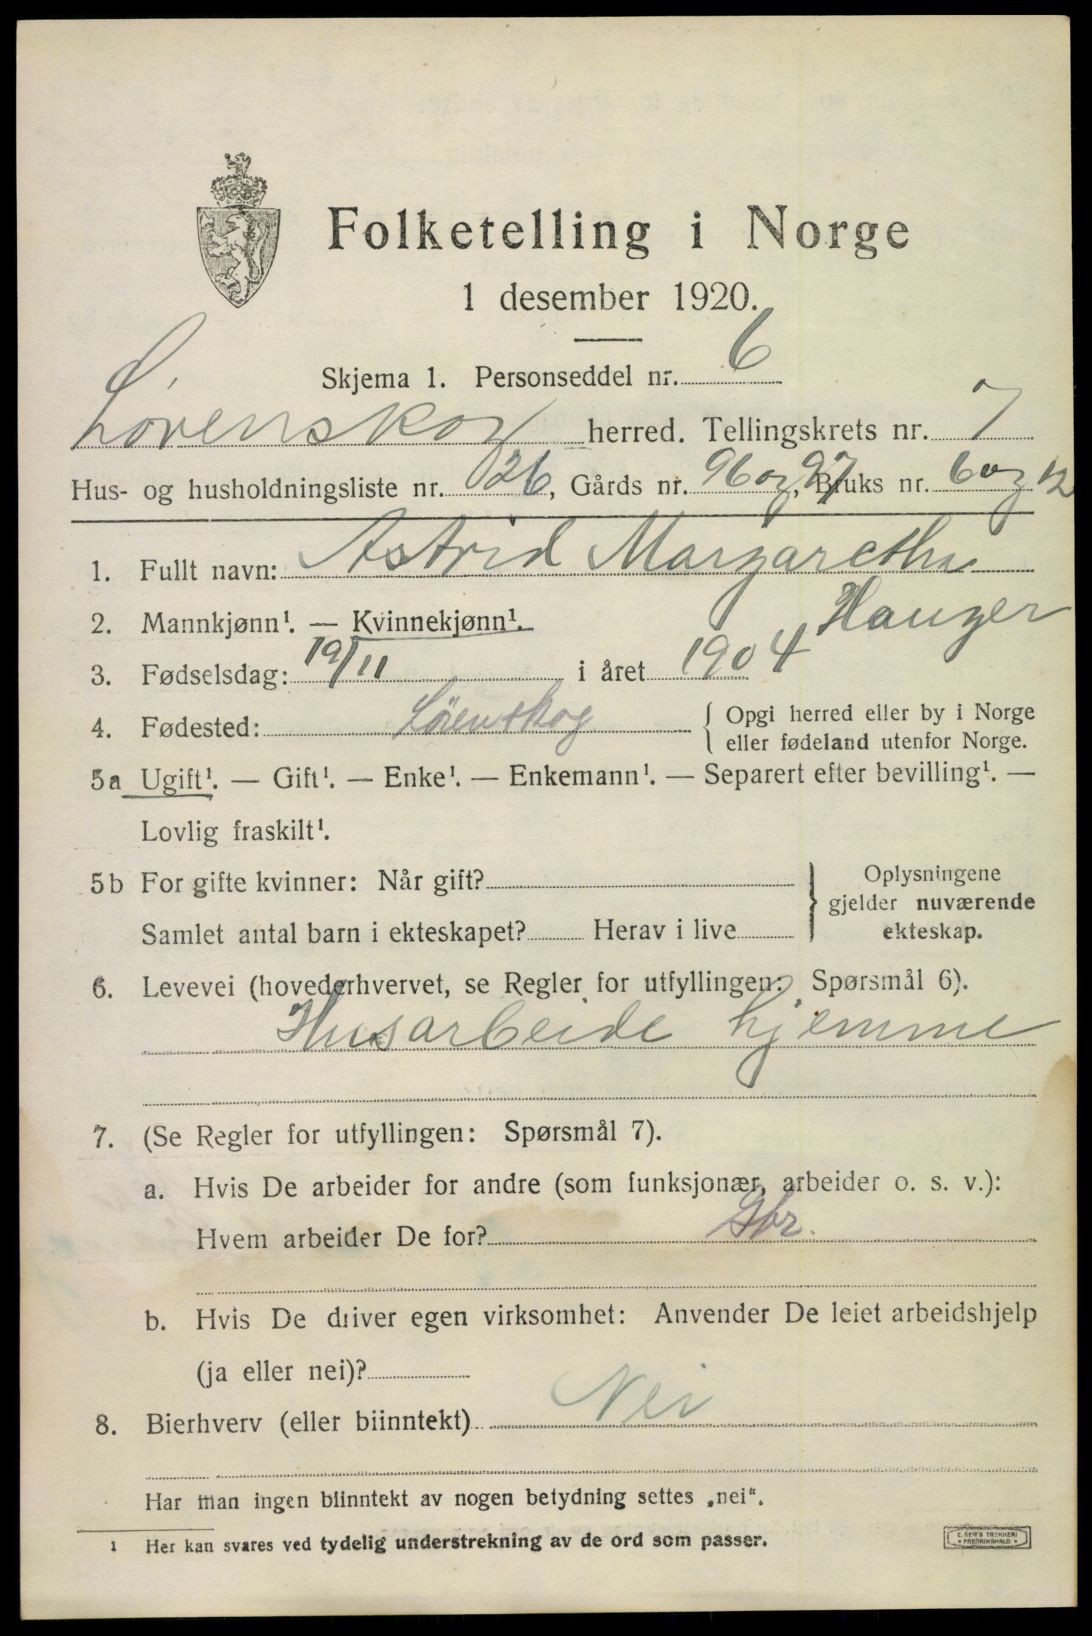 Folketelling i Norge
1 desember 1920.
Skjema 1. Personseddel nr. 6
Lørenskog herred. Tellingskrets nr. 7
Hus- og husholdningsliste nr. 26, Gårds nr. 96 og 97, Bruks nr. 6 og 12
1. Fullt navn: Astrid Margarethe
Hauger
2. Mannkjønn¹. — Kvinnekjønn¹.
3. Fødselsdag: 19/11 i året 1904
4. Fødested: Lørenskog { Opgi herred eller by i Norge
eller fødeland utenfor Norge.
5a Ugift¹. — Gift¹. — Enke¹. — Enkemann¹. — Separert efter bevilling¹. —
Lovlig fraskilt¹.
5b For gifte kvinner: Når gift? } Oplysningene
gjelder nuværende
Samlet antal barn i ekteskapet? Herav i live ekteskap.
6. Levevei (hovederhvervet, se Regler for utfyllingen: Spørsmål 6).
Husarbeide hjemme
7. (Se Regler for utfyllingen: Spørsmål 7).
a. Hvis De arbeider for andre (som funksjonær, arbeider o. s. v.):
Hvem arbeider De for? Gbr.
b. Hvis De driver egen virksomhet: Anvender De leiet arbeidshjelp
(ja eller nei)?
8. Bierhverv (eller biinntekt) Nei
Har man ingen biinntekt av nogen betydning settes „nei“.
1 Her kan svares ved tydelig understrekning av de ord som passer.
E. SEM'S TRYKKERI
FREDRIKSHALD